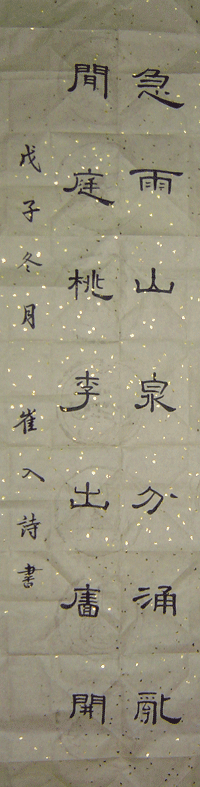 急雨山泉分涌亂
間庭桃李出廧開
戊子冬月崔入詩書